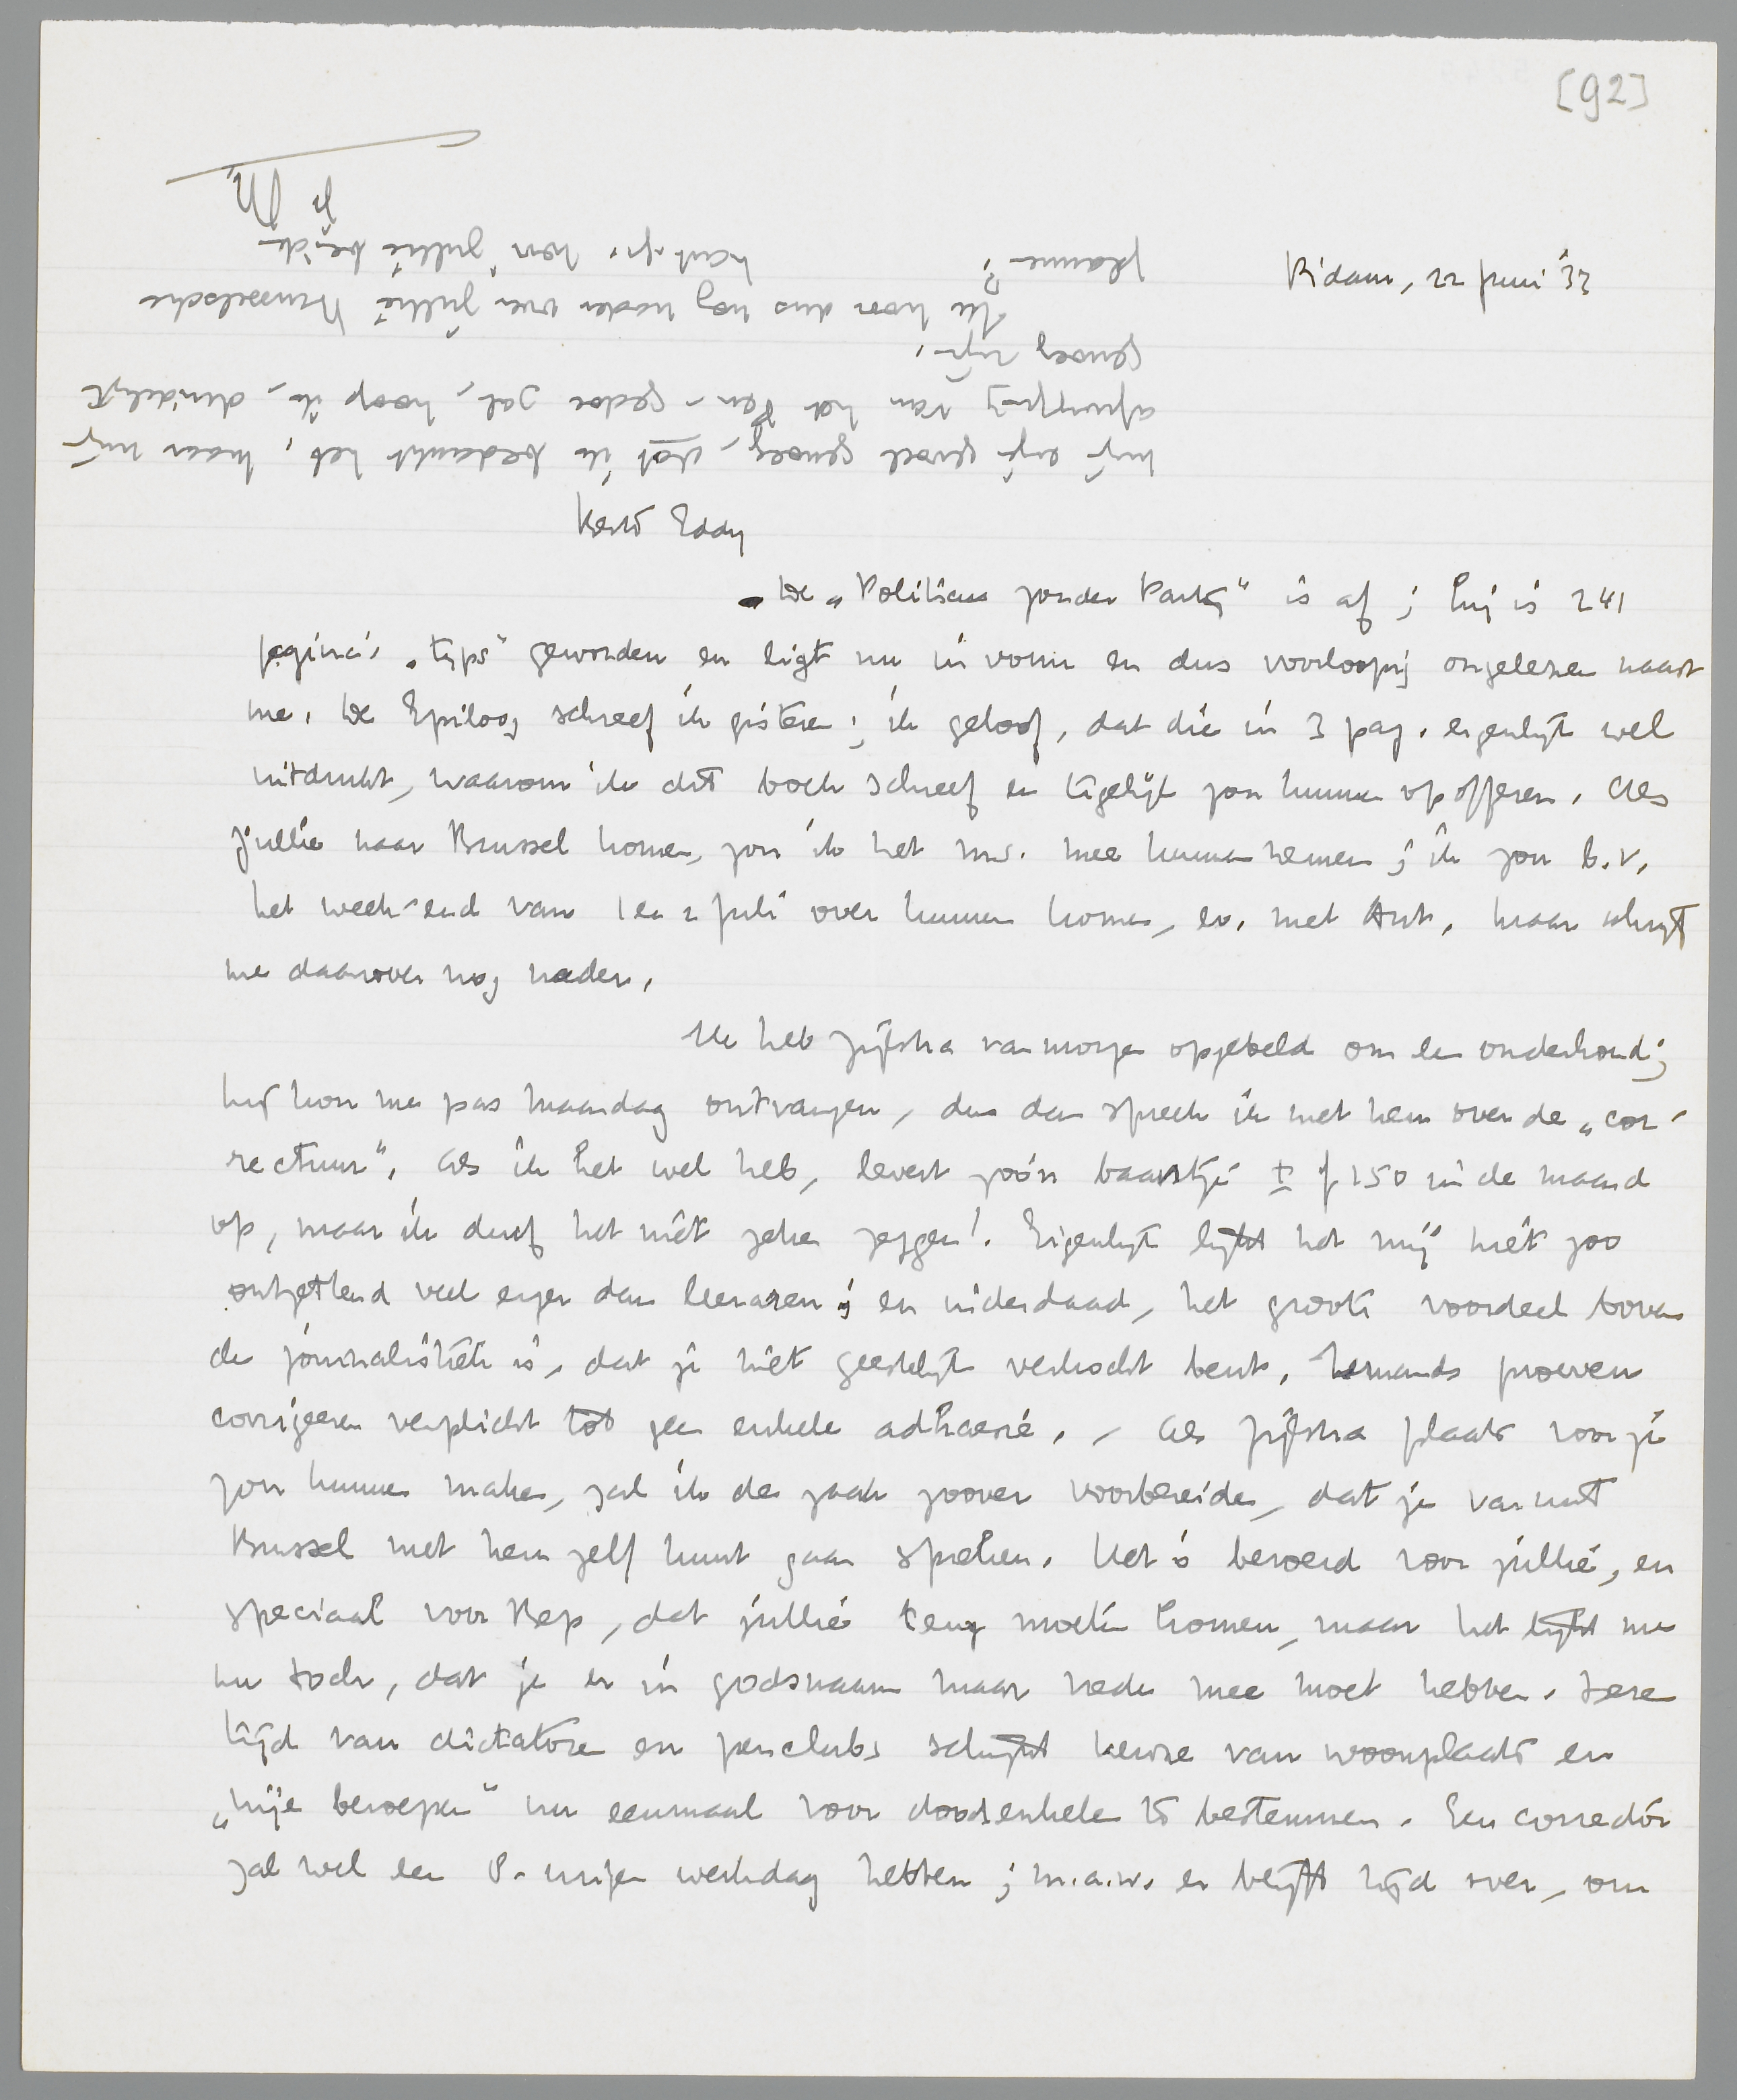 [92]
R'dam, 22 Juni '33
Beste Eddy
De „Politicus zonder Partij" is af; hij is 241
pagina's „type" geworden en ligt nu in vorm en dus voorloopig ongelezen naast
me. De Epiloog schreef ik gisteren; ik geloof, dat die in 3 pag. eigenlijk wel
uitdrukt, waarom ik dit boek schreef en tegelijk zou kunnen opofferen. Als
jullie naar Brussel komen, zou ik het ms. mee kunnen nemen; ik zou b.v.
het week-end van 1 en 2 Juli over kunnen komen, ev. met Ant. Maar schrijft
me daarover nog nader.
Ik heb Zijlstra vanmorgen opgebeld om een onderhoud;
hij kon me pas Maandag ontvangen, dus dan spreek ik met hem over de „cor-
rectuur". Als ik het wel heb, levert zoo'n baantje ± f 150 in de maand
op, maar ik durf het niet zeker zeggen! Eigenlijk lijkt het mij niet zoo
ontzettend veel erger dan leeraren; en inderdaad, het groote voordeel boven
de journalistiek is, dat je niet geestelijk verkocht bent. Iemands proeven
corrigeeren verplicht tot geen enkele adhaesie. - Als Zijlstra plaats voor je
zou kunnen maken, zal ik de zaak zoover voorbereiden, dat je vanuit
Brussel met hem zelf kunt gaan spreken. Het is beroerd voor jullie, en
speciaal voor Bep, dat jullie terug moeten komen, maar het lijkt me
nu toch, dat je er in godsnaam maar vrede mee moet hebben. Deze
tijd van dictatoren en penclubs schijnt keuze van woonplaats en
„vrije beroepen" nu eenmaal voor doodenkelen te bestemmen. Een corrector
zal wel een 8-urigen werkdag hebben; m.a.w. er blijft tijd over, om
mij erg genoeg, dat ik bedankt heb. Maar mijn
afwijzing van het Pen-gedoe zal, hoop ik, duidelijk
genoeg zijn.
Ik hoor dus nog nader over jullie Brusselsche
plannen?
hart. gr. van jullie beide
je M